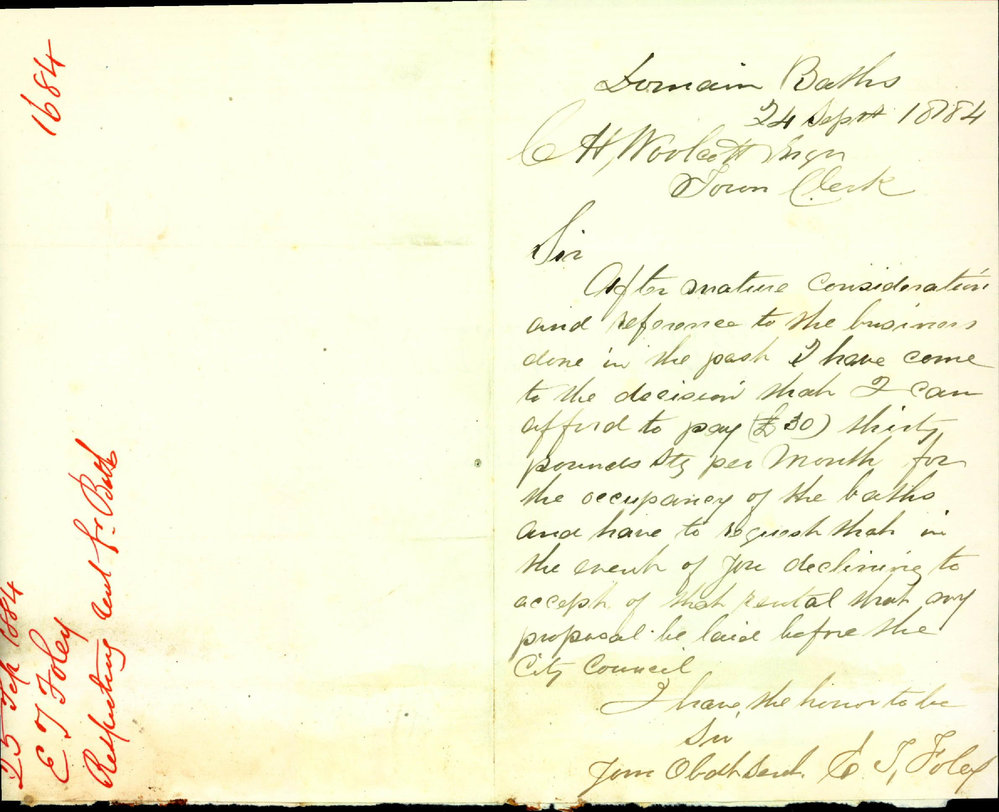 1684
25 Sep 1884
E T Foley
Respecting rent for Bath
Domain Baths
24 Sept 1884
C H, Woolcott Esqr
Town Clerk
Sir
After mature consideration
and reference to the business
done in the past I have come
to the decision that I can
afford to pay (£30) thirty
pounds Stg per Month for
the occupancy of the baths
and have to request that in
the event of you declining to
accept of that rental that my
proposal be laid before the
City Council
I have the honor to be
Sir
Your Obdt Servt. E T, Foley